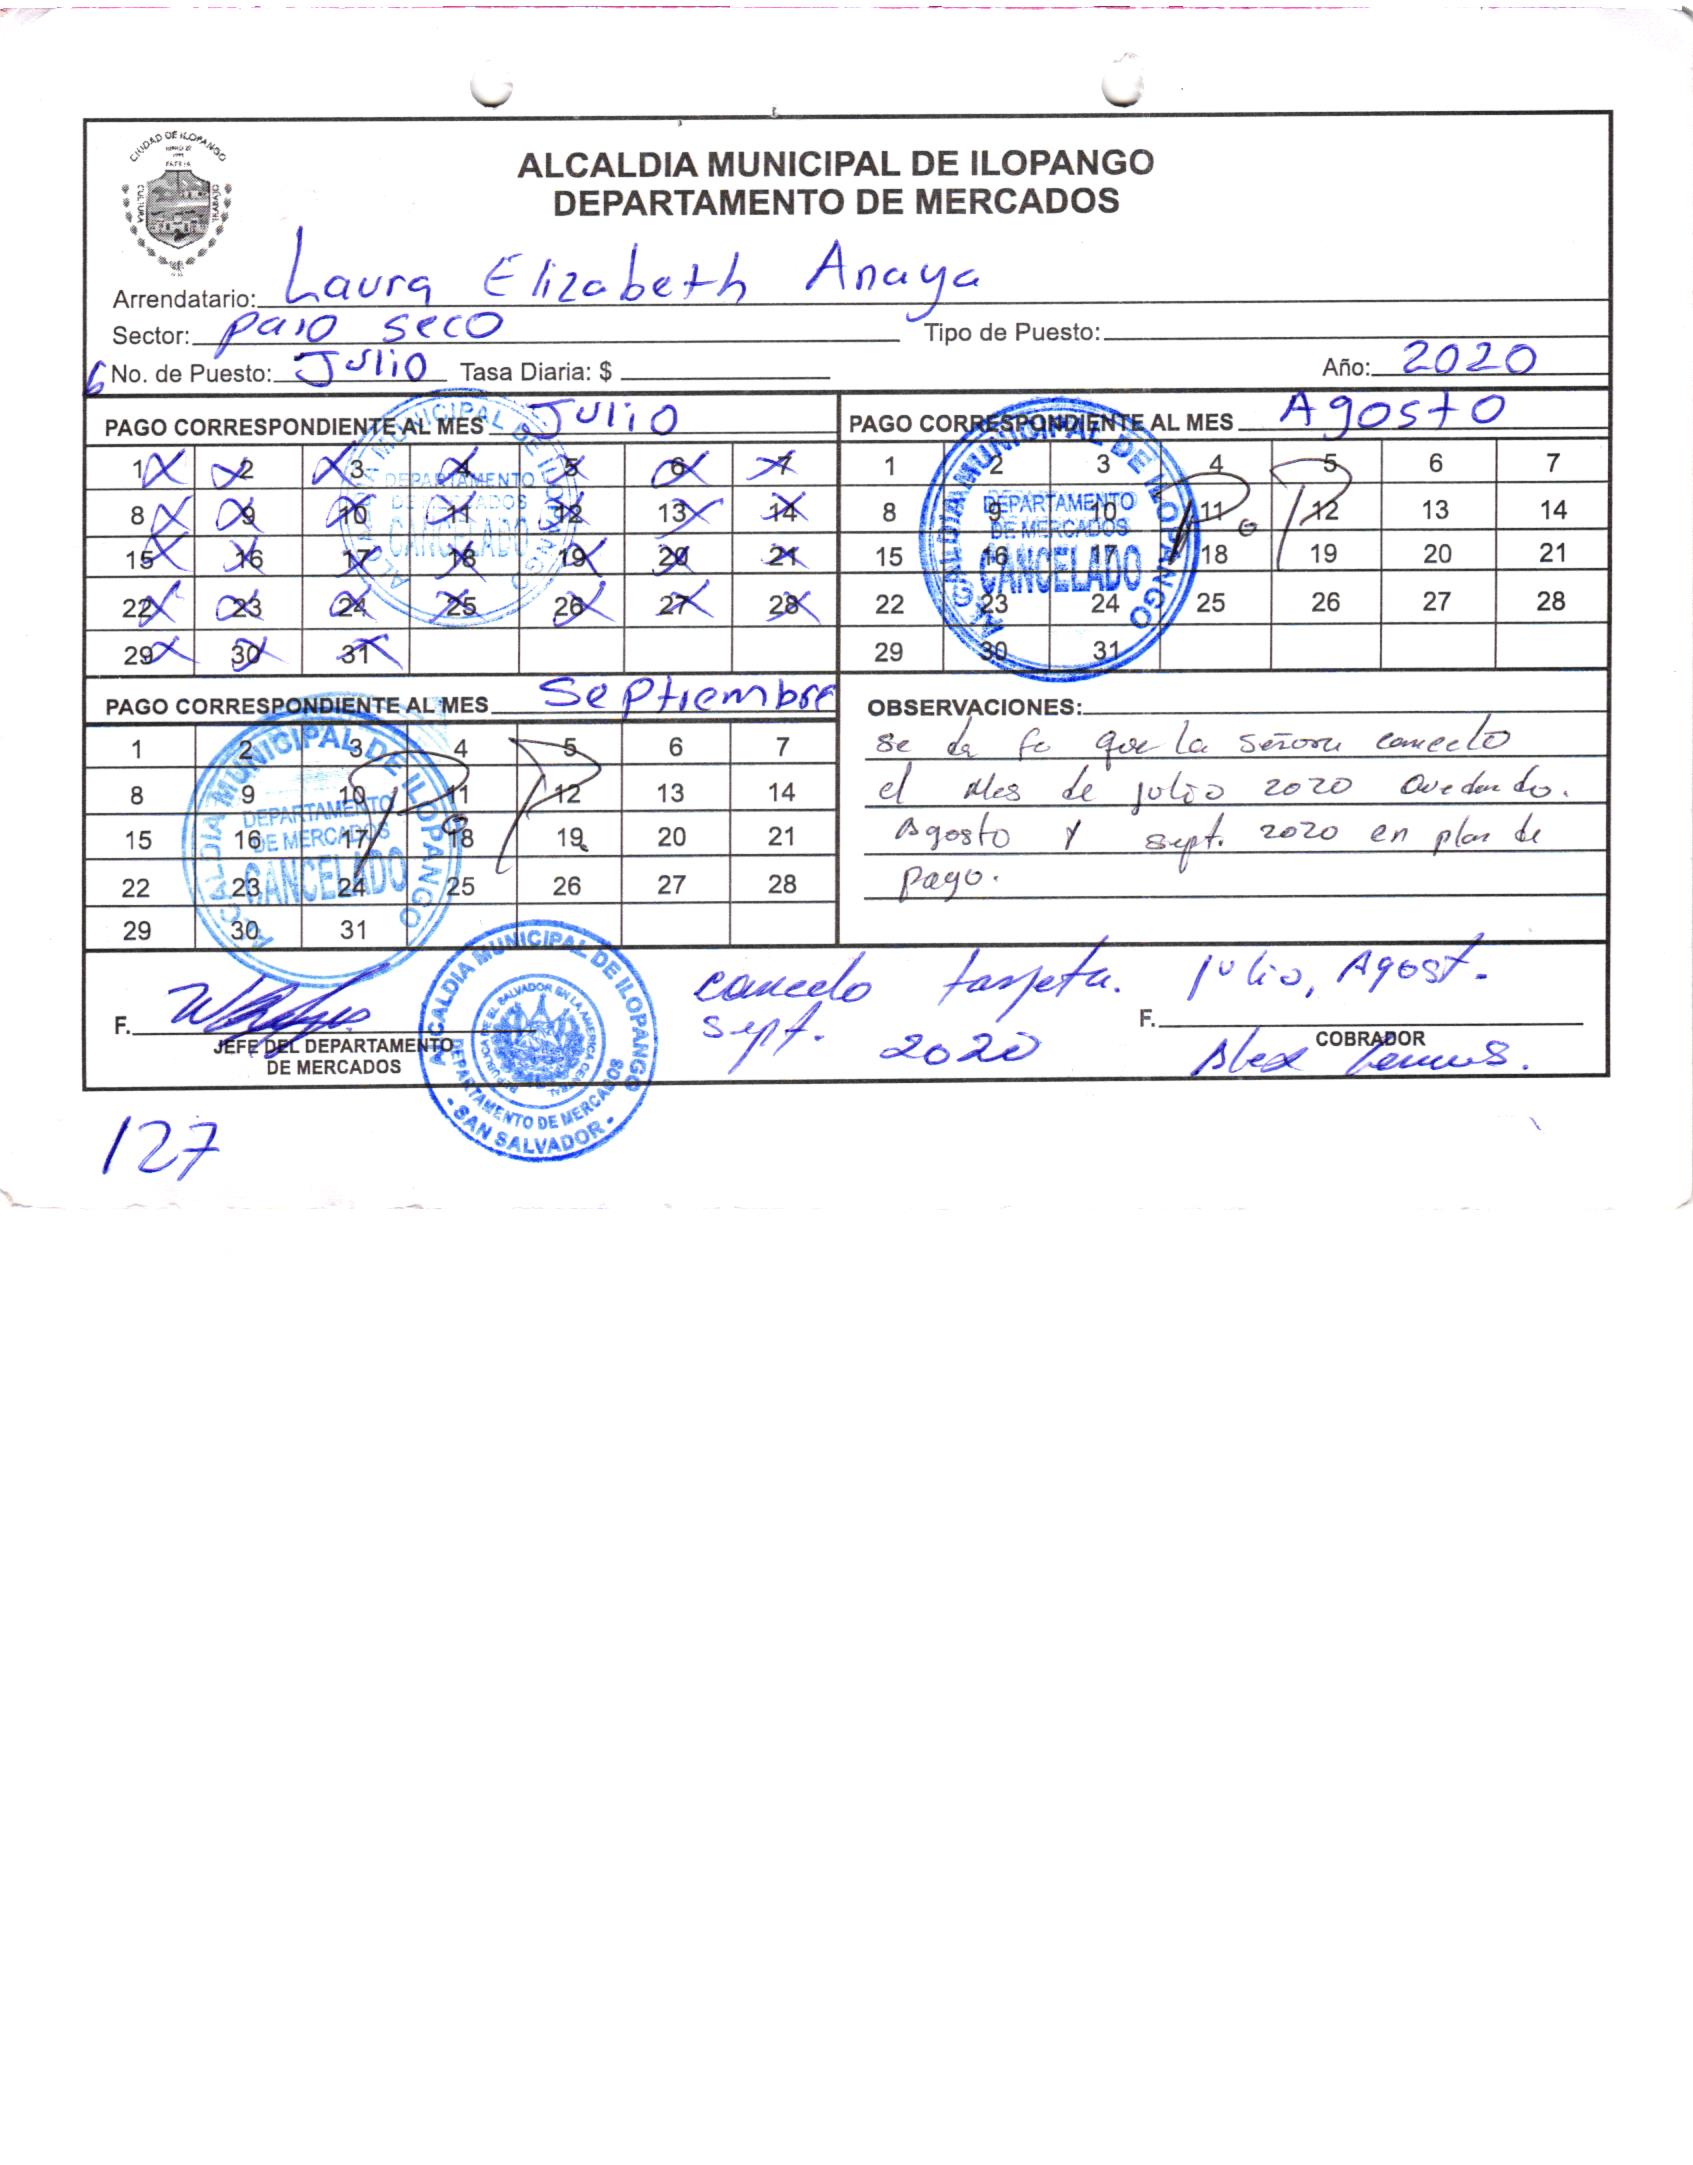 CIUDAD DE ILOPANGO
CULTURA
TRABAJO
ALCALDIA MUNICIPAL DE ILOPANGO
DEPARTAMENTO DE MERCADOS
Arrendatario: Laura Elizabeth Anaya
Sector: paso seco Tipo de Puesto:
6 No. de Puesto: Julio Tasa Diaria: $ Año: 2020
PAGO CORRESPONDIENTE AL MES Julio
1 2 3 4 5 6 7
8 9 10 11 12 13 14
15 16 17 18 19 20 21
22 23 24 25 26 27 28
29 30 31
ALCALDIA MUNICIPAL DE ILOPANGO
DEPARTAMENTO
DE MERCADOS
CANCELADO
PAGO CORRESPONDIENTE AL MES Agosto
1 2 3 4 5 6 7
8 9 10 11 12 13 14
15 16 17 18 19 20 21
22 23 24 25 26 27 28
29 30 31
ALCALDIA MUNICIPAL DE ILOPANGO
DEPARTAMENTO
DE MERCADOS
CANCELADO
P. P
PAGO CORRESPONDIENTE AL MES Septiembre
1 2 3 4 5 6 7
8 9 10 11 12 13 14
15 16 17 18 19 20 21
22 23 24 25 26 27 28
29 30 31
ALCALDIA MUNICIPAL DE ILOPANGO
DEPARTAMENTO
DE MERCADOS
CANCELADO
P. P
OBSERVACIONES:
se da fe que la señora cancelo
el Mes de julio 2020 Quedando.
Agosto y sept. 2020 en plan de
pago.
F.
JEFE DEL DEPARTAMENTO
DE MERCADOS
ALCALDIA MUNICIPAL DE ILOPANGO
REPUBLICA DE EL SALVADOR EN LA AMERICA CENTRAL
DEPARTAMENTO DE MERCADOS
• SAN SALVADOR •
cancelo tarjeta. julio, Agost.
sept. 2020
F.
COBRADOR
Alex Lemus.
127